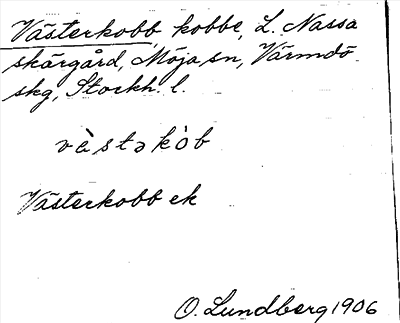 Västerkobb kobbe, L. Nassa
skärgård, Möja sn, Värmdö
skg, Stockh. l.
västəkòb
Västerkobb ek
O. Lundberg 1906